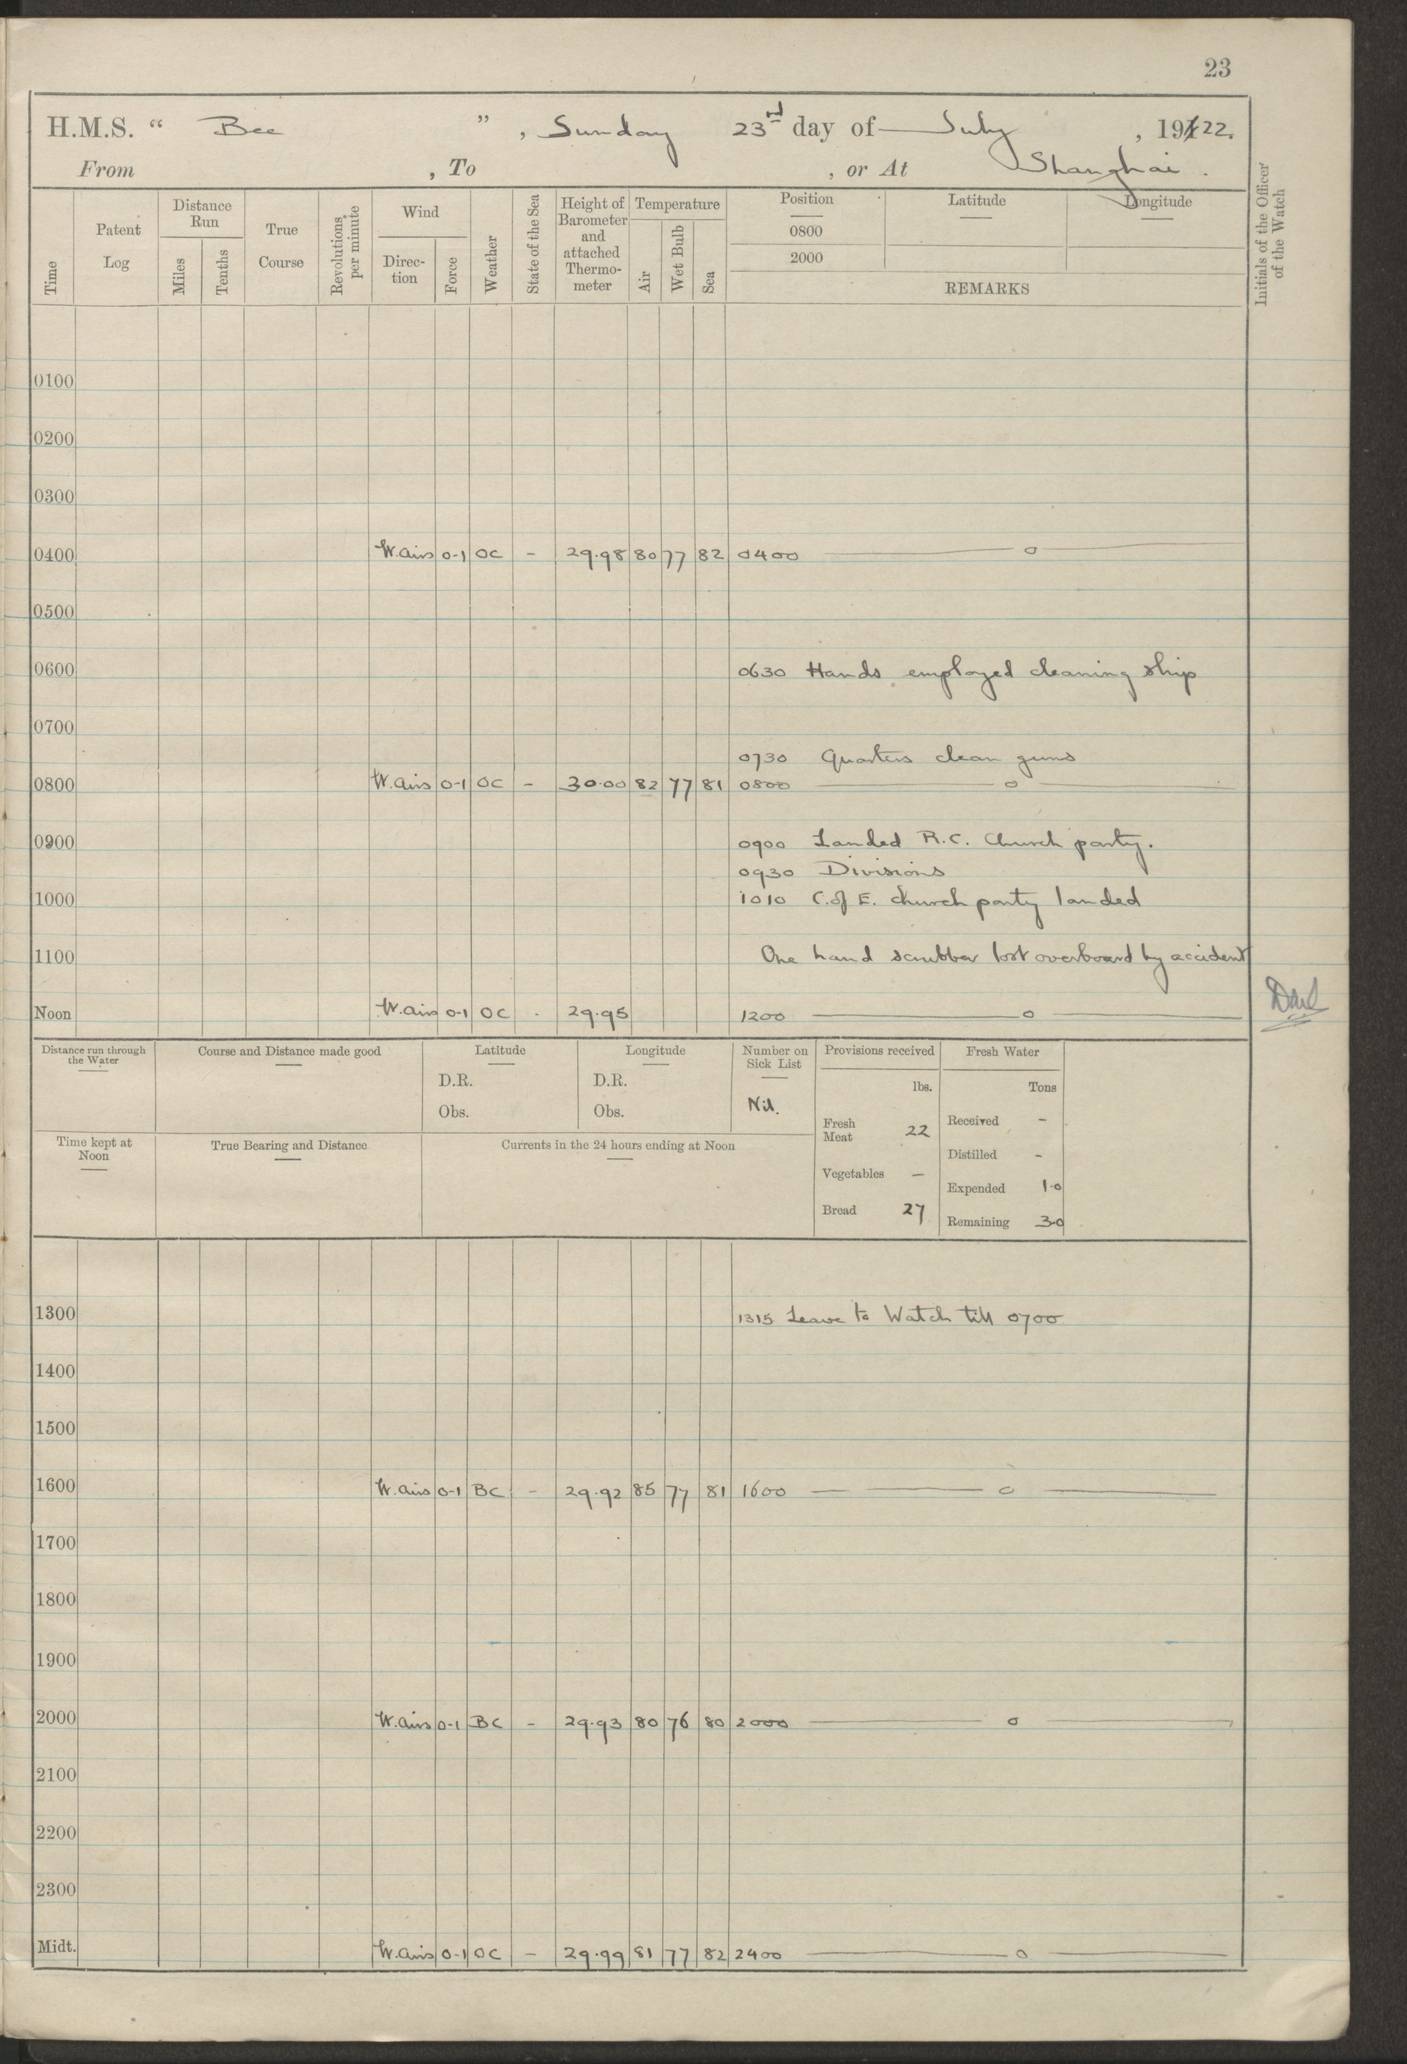 23
H.M.S. “ Bee ” , Sunday 23rd day of July , 1922.
From , To , or At Shanghai .
Time
Patent Log
Distance Run
Miles
Tenths
True Course
Revolutions per minute
Wind
Direc-tion
Force
Weather
State of the Sea
Height of Barometer and attached Thermo-meter
Temperature
Air
Wet Bulb
Sea
Position
0800
2000
Latitude
Longitude
REMARKS
Initials of the Officer of the Watch
0100
0200
0300
0400 W.airs 0-1 OC - 29.98 80 77 82 0400 — o —
0500
0600 0630 Hands employed cleaning ship
0700
0730 Quarters clean guns
0800 W.airs 0-1 OC - 30.00 82 77 81 0800 — o —
0900 0900 Landed R.C. Church party.
0930 Divisions
1000 1010 C.of E. church party landed
1100 One hand scrubber lost overboard by accident
Noon W.airs 0-1 OC . 29.95 1200 — o —
Distance run through the Water
Course and Distance made good
Latitude
D.R.
Obs.
Longitude
D.R.
Obs.
Number on Sick List
Nil.
Provisions received
lbs.
Fresh Meat 22
Vegetables —
Bread 27
Fresh Water
Tons
Received -
Distilled -
Expended 1.0
Remaining 30
Time kept at Noon
True Bearing and Distance
Currents in the 24 hours ending at Noon
1300 1315 Leave to Watch till 0700
1400
1500
1600 W.airs 0-1 BC - 29.92 85 77 81 1600 — o —
1700
1800
1900
2000 W.airs 0-1 BC - 29.93 80 76 80 2000 — o —
2100
2200
2300
Midt. W.airs 0-1 OC - 29.99 81 77 82 2400 — o —